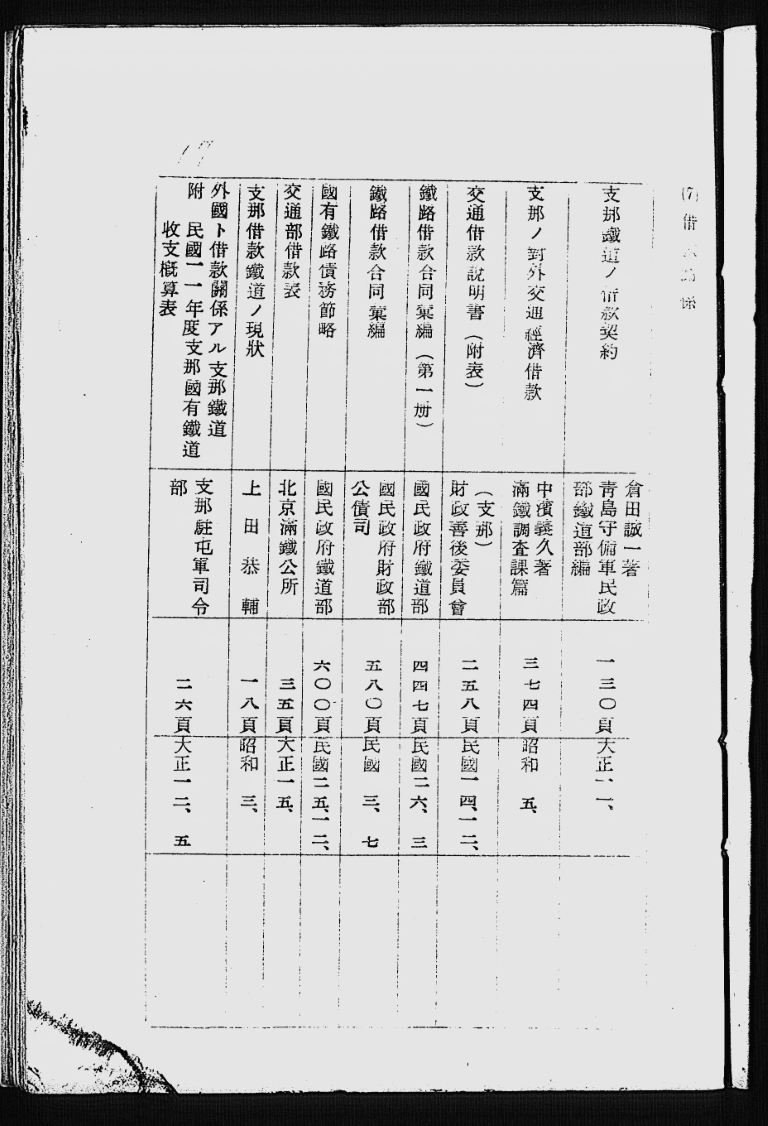 (7) 借 係
支那鐵道ノ借款契約
倉田誠一著
靑島守備軍民政
部鐵道部編
一三〇頁
大正一一、
支那ノ對外交通經濟借款
中濱義久著
滿鐵調査課篇
三七四頁
昭和 五、
交通借款說明書（附表）
（支那）
財政善後委員會
二五八頁
民國一四、一二、
鐵路借款合同彙編（第一册）
國民政府鐵道部
四四七頁
民國二六、三
鐵路借款合同彙編
國民政府財政部
公債司
五八〇頁
民國 三、七
國有鐵路債務節略
國民政府鐵道部
六〇〇頁
民國二五、一二、
交通部借款表
北京滿鐵公所
三五頁
大正一五、
支那借款鐵道ノ現狀
上田恭輔
一八頁
昭和 三、
外國ト借款關係アル支那鐵道
附 民國一一年度支那國有鐵道
收支槪算表
支那駐屯軍司令
部
二六頁
大正一二、五